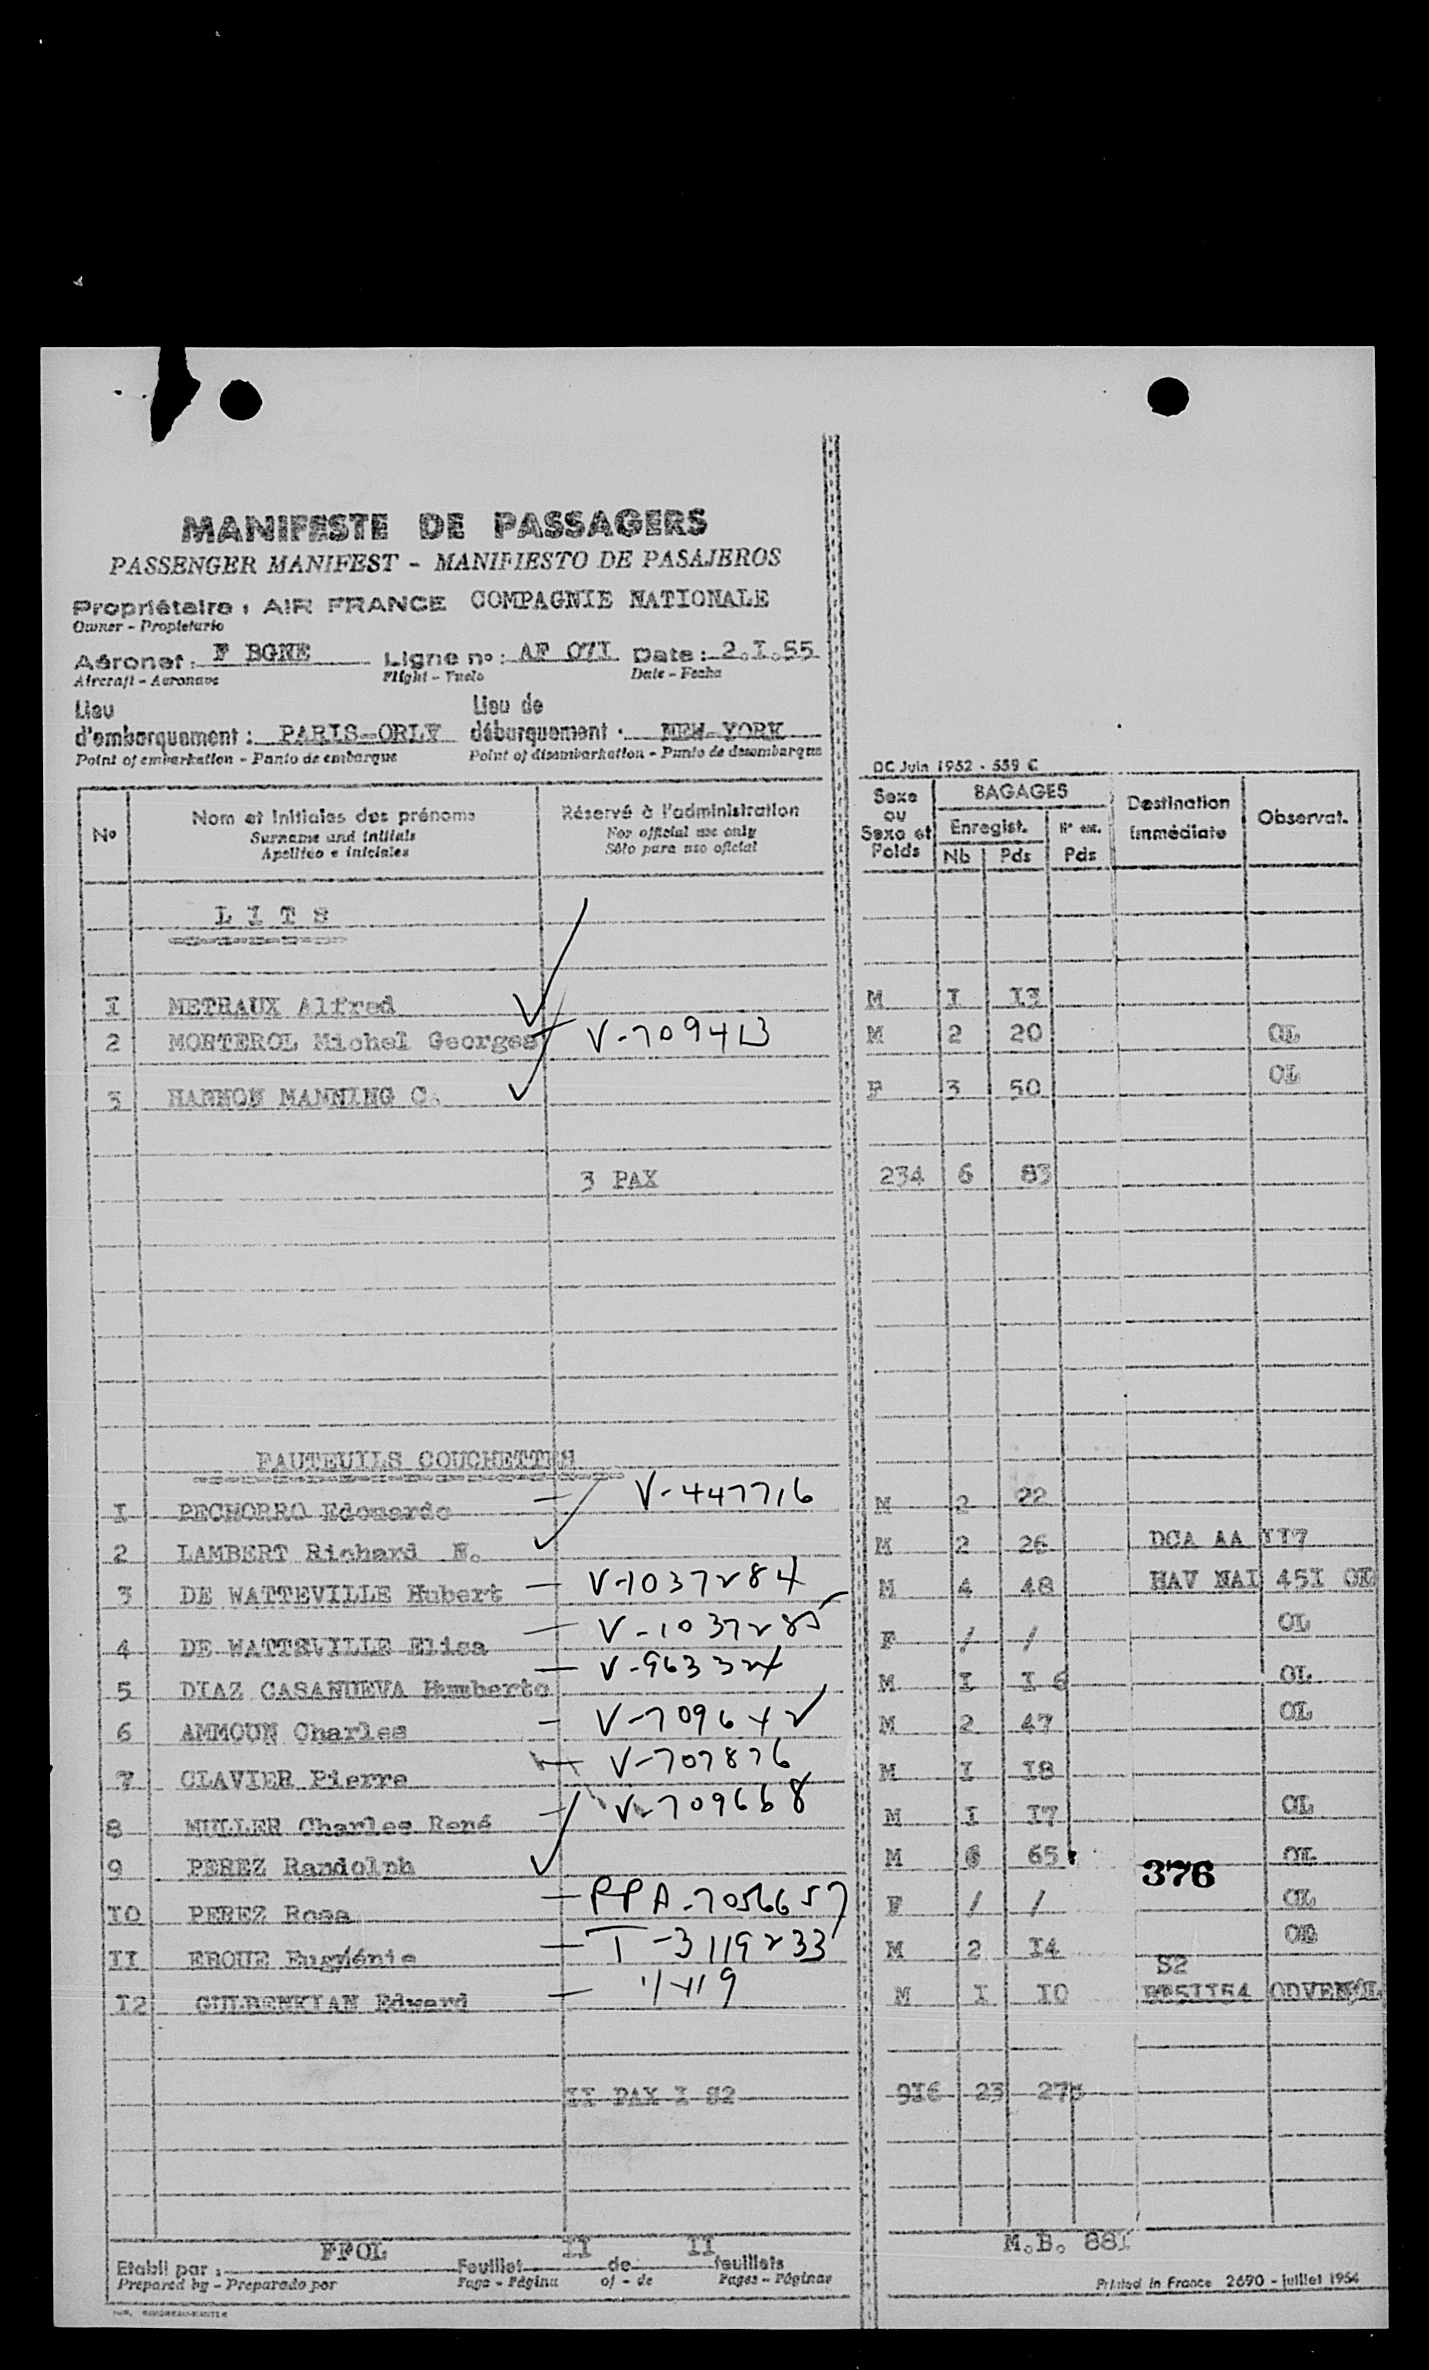 MANIFESTE DE PASSAGERS
PASSENGER MANIFEST - MANIFIESTO DE PASAJEROS
Propriétaire : AIR FRANCE COMPAGNIE NATIONALE
Owner - Propietario
Aéronef : F BGNE Ligne nº : AF 07I Date : 2.I.55
Aircraft - Aeronave Flight - Vuelo Date - Fecha
Lieu d'embarquement : PARIS-ORLY Lieu de débarquement : NEW-YORK
Point of embarkation - Punto de embarque Point of disembarkation - Punto de desembarque
DC Juin 1952 - 559 C
Nº Nom et initiales des prénoms Réservé à l'administration Sexe ou Sexe et Poids BAGAGES Destination immédiate Observat.
Surname and initials For official use only Enregist. Nº enr.
Apellido e iniciales Sólo para uso oficial Nb Pds Pds
L I T S
I METRAUX Alfred M I I3
2 MORTEROL Michel Georges V-709413 M 2 20 OL
3 HANNON MANNING C. F 3 50 OL
3 PAX 234 6 83
FAUTEUILS COUCHETTES
I PECHORRO Edouardo V-447716 M 2 22
2 LAMBERT Richard N. M 2 26 DCA AA II7
3 DE WATTEVILLE Hubert V-1037284 M 4 48 HAV NAI 45I OL
4 DE WATTEVILLE Elisa V-1037285 F / / OL
5 DIAZ CASANUEVA Humberto V-963324 M I I 6 OL
6 AMMOUN Charles V-709642 M 2 47 OL
7 CLAVIER Pierre V-707876 M I I8
8 MULLER Charles René V-709668 M I I7 OL
9 PEREZ Randolph M 6 65 OL
376
IO PEREZ Rosa PPA-7056657 F / / OL
II EBOUE Eugénie T-3119233 M 2 I4 OL
S2
I2 GULBENKIAN Edward M I IO
II PAX I S2 9I6 23 275
M.B. 881
Etabli par : FFOL Feuillet II de II feuillets
Prepared by - Preparado por Page - Página of - de Pages - Páginas
Printed in France 2690 - juillet 1954